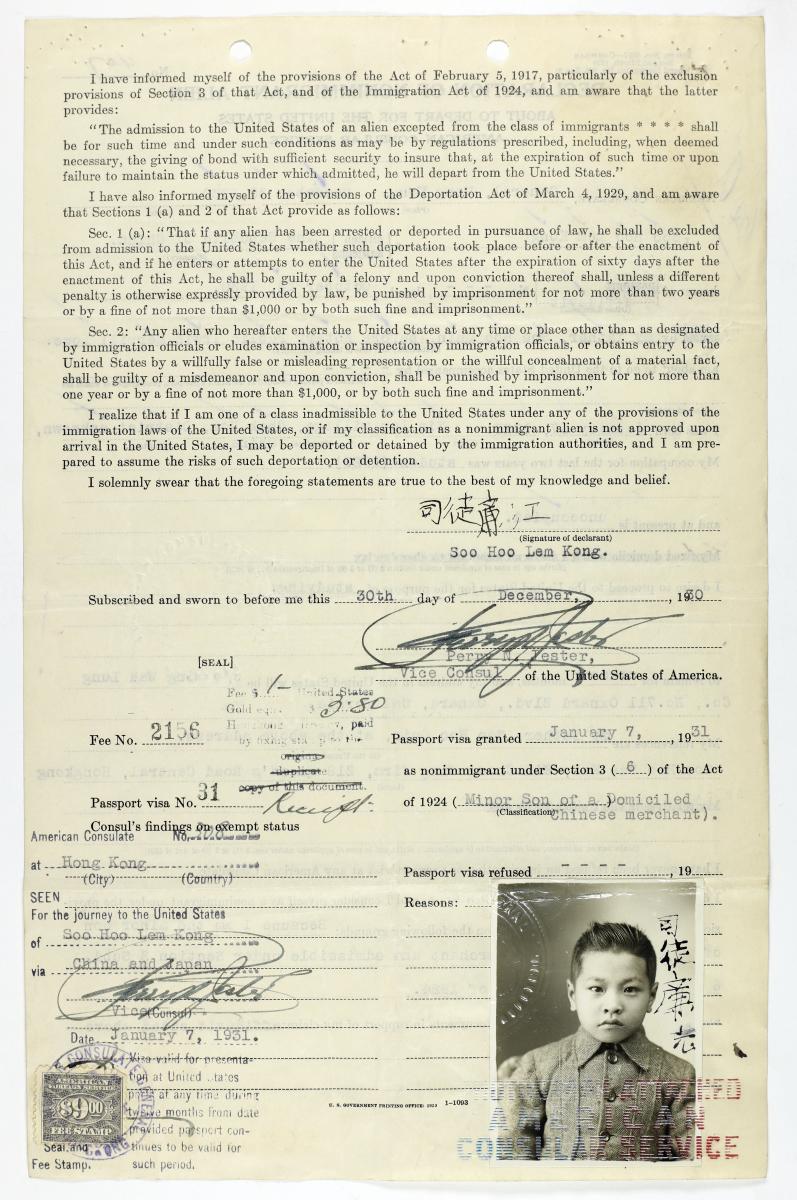 I have informed myself of the provisions of the Act of February 5, 1917, particularly of the exclusion
provisions of Section 3 of that Act, and of the Immigration Act of 1924, and am aware that the latter
provides:
"The admission to the United States of an alien excepted from the class of immigrants * * * * shall
be for such time and under such conditions as may be by regulations prescribed, including, when deemed
necessary, the giving of bond with sufficient security to insure that, at the expiration of such time or upon
failure to maintain the status under which admitted, he will depart from the United States."
I have also informed myself of the provisions of the Deportation Act of March 4, 1929, and am aware
that Sections 1 (a) and 2 of that Act provide as follows:
Sec. 1 (a): "That if any alien has been arrested or deported in pursuance of law, he shall be excluded
from admission to the United States whether such deportation took place before or after the enactment of
this Act, and if he enters or attempts to enter the United States after the expiration of sixty days after the
enactment of this Act, he shall be guilty of a felony and upon conviction thereof shall, unless a different
penalty is otherwise expressly provided by law, be punished by imprisonment for not more than two years
or by a fine of not more than $1,000 or by both such fine and imprisonment."
Sec. 2: "Any alien who hereafter enters the United States at any time or place other than as designated
by immigration officials or eludes examination or inspection by immigration officials, or obtains entry to the
United States by a willfully false or misleading representation or the willful concealment of a material fact,
shall be guilty of a misdemeanor and upon conviction, shall be punished by imprisonment for not more than
one year or by a fine of not more than $1,000, or by both such fine and imprisonment."
I realize that if I am one of a class inadmissible to the United States under any of the provisions of the
immigration laws of the United States, or if my classification as a nonimmigrant alien is not approved upon
arrival in the United States, I may be deported or detained by the immigration authorities, and I am pre-
pared to assume the risks of such deportation or detention.
I solemnly swear that the foregoing statements are true to the best of my knowledge and belief.
司徒廉江
(Signature of declarant)
Soo Hoo Lem Kong.
Subscribed and sworn to before me this 30th day of December, 1930
[SEAL]
Perry N. Jester,
Vice Consul of the United States of America.
Fee $ 1- United States
Gold equ. 3.80
paid
Fee No. 2156
by fixing to the
original
duplicate
copy of this document.
Receipt.
Passport visa No. 31
Passport visa granted January 7, 1931
as nonimmigrant under Section 3 (6) of the Act
of 1924 (Minor Son of a Domiciled
(Classification) Chinese merchant).
Consul's findings on exempt status
American Consulate No.
at Hong Kong
(City) (Country)
SEEN
For the journey to the United States
of Soo Hoo Lem Kong
via China and Japan
Vice (Consul)
Date January 7, 1931.
Visa valid for presenta-
tion at United States
at any time during
twelve months from date
provided passport con-
tinues to be valid for
such period.
AMERICAN
FOREIGN SERVICE
$9.00
FEE STAMP
Seal and
Fee Stamp.
Passport visa refused - - - - , 19
Reasons:
司徒廉
AMERICAN
CONSULAR SERVICE
U. S. GOVERNMENT PRINTING OFFICE: 1-1093